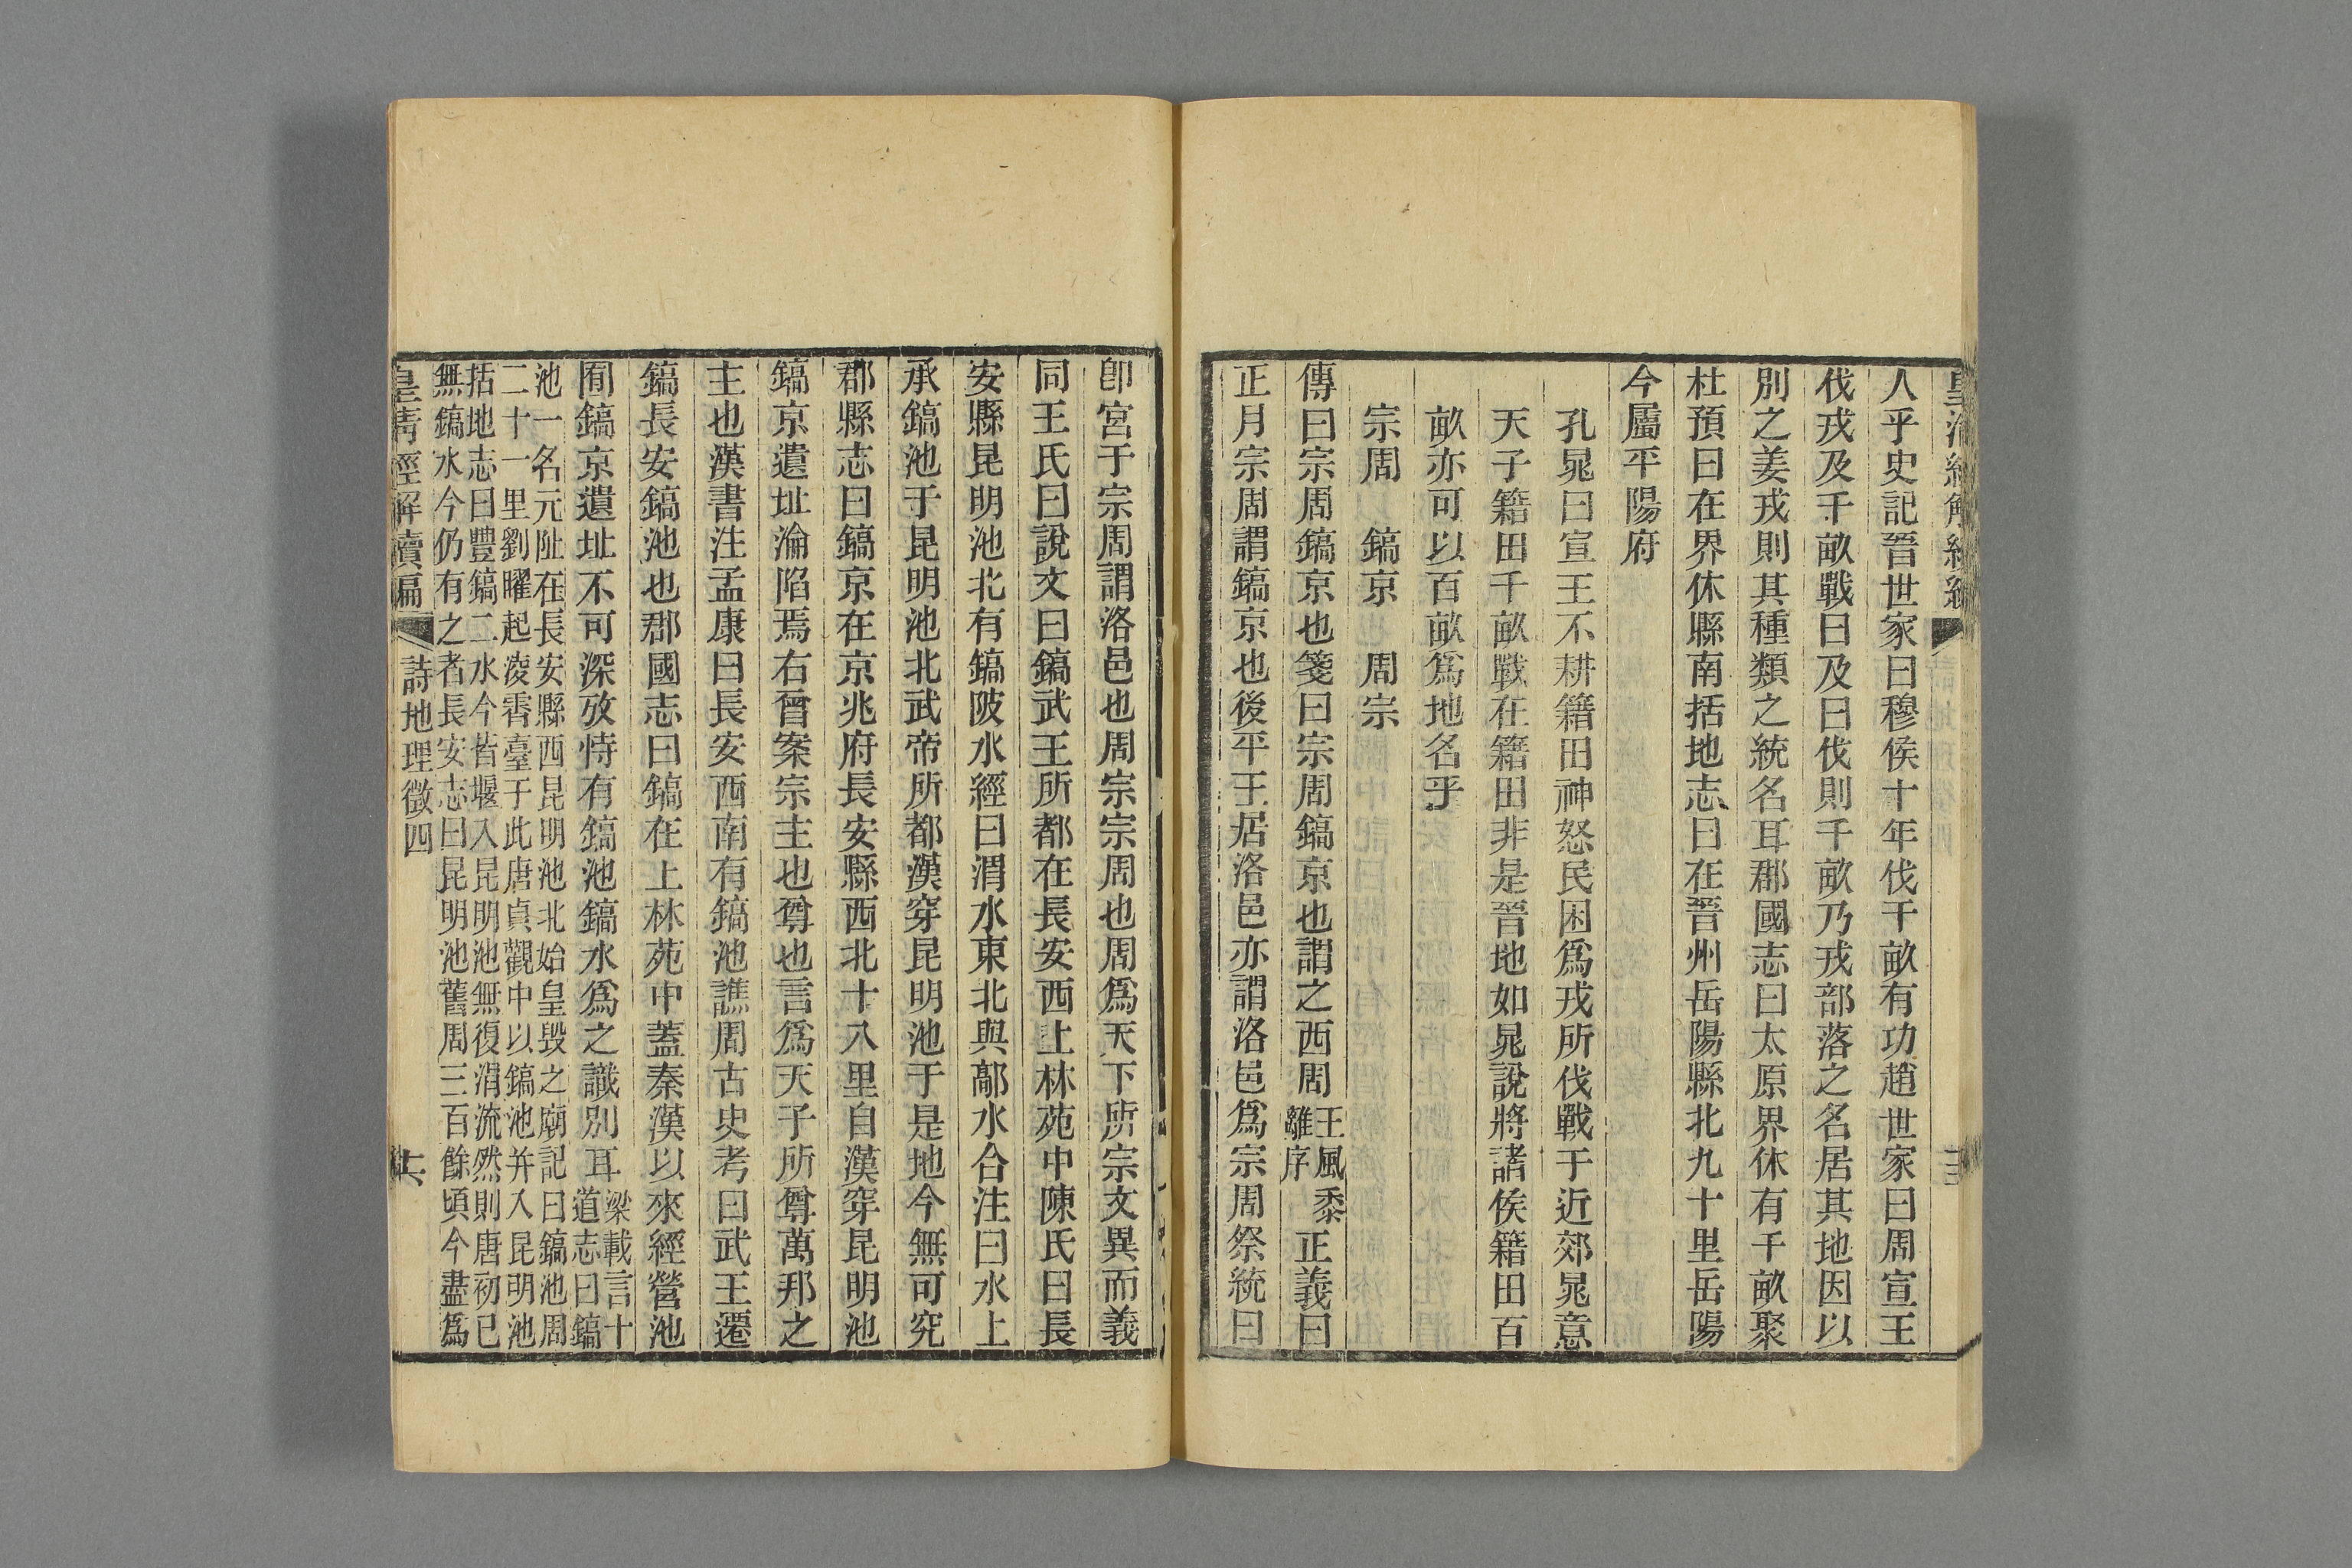 人乎史記晉世家曰穆侯十年伐千畝有功趙世家曰周宣王
伐戎及千畝戰曰及曰伐則千畝乃戎部落之名居其地因以
別之姜戎則其種類之統名耳郡國志曰太原界休有千畝聚
杜預曰在界休縣南括地志曰在晉州岳陽縣北九十里岳陽
今屬平陽府
孔晁曰宣王不耕籍田神怒民困爲戎所伐戰于近郊晁意
天子籍田千畝戰在籍田非是晉地如晁說將諸侯籍田百
畝亦可以百畝爲地名乎
宗周 鎬京 周宗
傳曰宗周鎬京也箋曰宗周鎬京也謂之西周王風黍離序正義曰
正月宗周謂鎬京也後平王居洛邑亦謂洛邑爲宗周祭統曰
卽宮于宗周謂洛邑也周宗宗周也周爲天下所宗文異而義
同王氏曰說文曰鎬武王所都在長安西上林苑中陳氏曰長
安縣昆明池北有鎬陂水經曰渭水東北與鄗水合注曰水上
承鎬池于昆明池北武帝所都漢穿昆明池于是地今無可究
郡縣志曰鎬京在京兆府長安縣西北十八里自漢穿昆明池
鎬京遺址淪陷焉右曾案宗主也尊也言爲天子所尊萬邦之
主也漢書注孟康曰長安西南有鎬池譙周古史考曰武王遷
鎬長安鎬池也郡國志曰鎬在上林苑中蓋秦漢以來經營池
囿鎬京遺址不可深攷恃有鎬池鎬水爲之識別耳梁載言十道志曰鎬
池一名元阯在長安縣西昆明池北始皇毀之廟記曰鎬池周
二十一里劉曜起凌霄臺于此唐貞觀中以鎬池并入昆明池
括地志曰豐鎬二水今皆堰入昆明池無復涓流然則唐初已
無鎬水今仍有之者長安志曰昆明池舊周三百餘頃今盡爲
皇清經解續編 詩地理徵四 十六